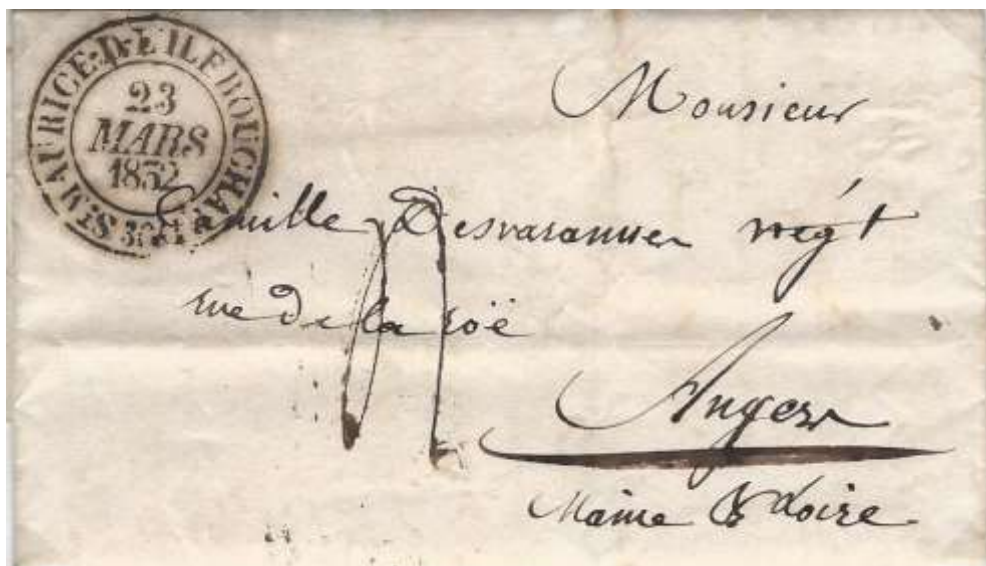 ST MAURICE-D-L'ILE BOUCHA
23
MARS
1832
Monsieur
Camille Desvarannes nég't
rue de la roë
Angers
Maine & Loire